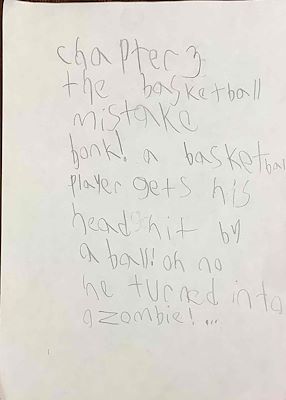 chapter 3
the basketball
mistake
bonk! a basketball
player gets his
head hit by
a ball! oh no
he turned into
a zombie!...